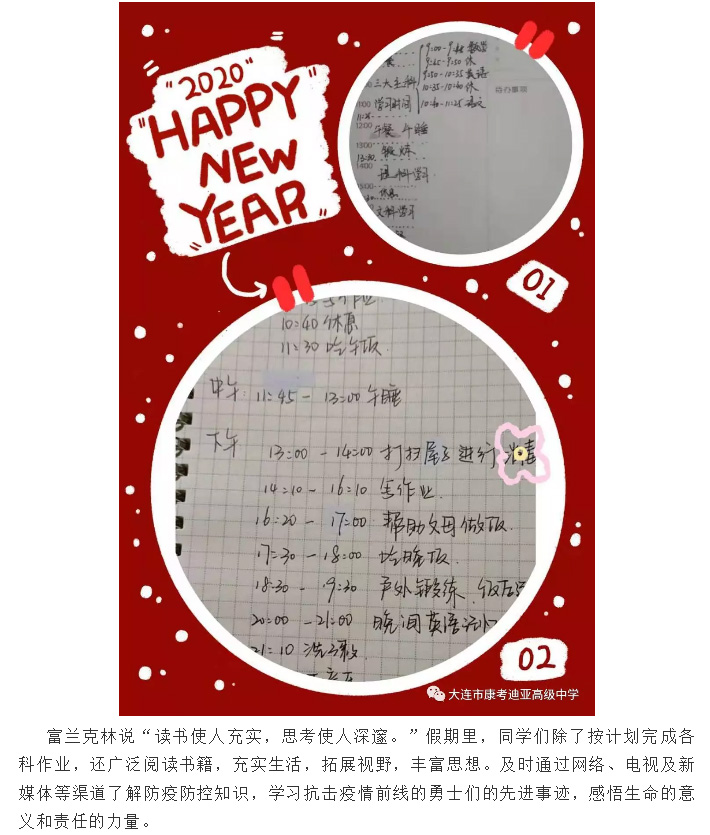 "2020"
"HAPPY
NEW
YEAR"
9:00-9:45 数学
9:45-9:50 休
9:50-10:35 英语
三大主科
10:35-10:40 休
学习时间
10:40-11:25 语文
待办事项
12:00
午餐 午睡
13:00
锻炼
14:00
理科学习
休息
文科学习
01
写作业
10:40 休息
11:30 吃午饭
中午: 11:45-13:00 午睡
下午 13:00-14:00 打扫屋子进行消毒
14:10-16:10 写作业
16:20-17:00 帮助父母做饭.
17:30-18:00 吃晚饭.
18:30-9:30 户外锻练、饭后
20:00-21:00 晚间英语
21:10 洗漱
02
大连市康考迪亚高级中学
富兰克林说“读书使人充实，思考使人深邃。”假期里，同学们除了按计划完成各
科作业，还广泛阅读书籍，充实生活，拓展视野，丰富思想。及时通过网络、电视及新
媒体等渠道了解防疫防控知识，学习抗击疫情前线的勇士们的先进事迹，感悟生命的意
义和责任的力量。